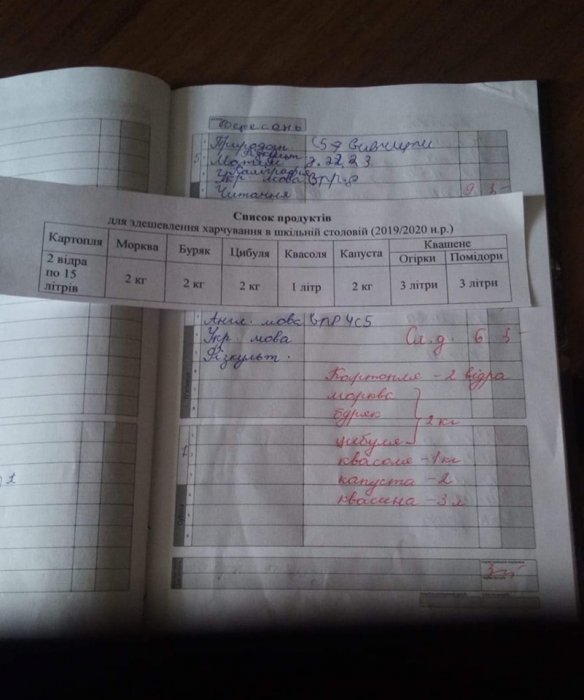 Вересень
Природозн
С 7 вивчити
Математ
2. 22, 23
Укр мова
Читання
Список продуктів
для здешевлення харчування в шкільній столовій (2019/2020 н.р.)
Картопля Морква Буряк Цибуля Квасоля Капуста Квашене
Огірки Помідори
2 відра по 15 літрів 2 кг 2 кг 2 кг 1 літр 2 кг 3 літри 3 літри
Англ. мова ВПР 4 С5
Укр мова
Фізкульт.
Картопля - 2 відра
морква
буряк
2 кг
цибуля
квасоля - 1 кг
капуста - 2
квашена - 3 л